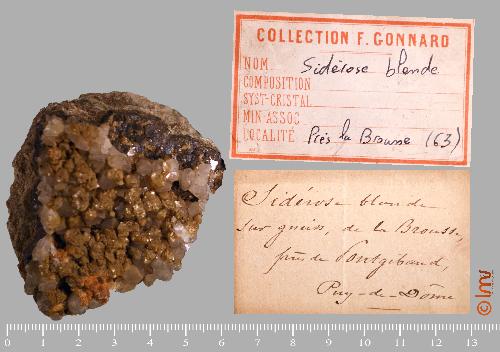 COLLECTION F. GONNARD
NOM Sidérose blende
COMPOSITION
SYST-CRISTAL
MIN-ASSOC
LOCALITÉ Près la Brousse (63)
Sidérose blende
sur gneiss, de la Brousse,
près de Pontgibaud,
Puy-de-Dôme
© lmv
0 1 2 3 4 5 6 7 8 9 10 11 12 13